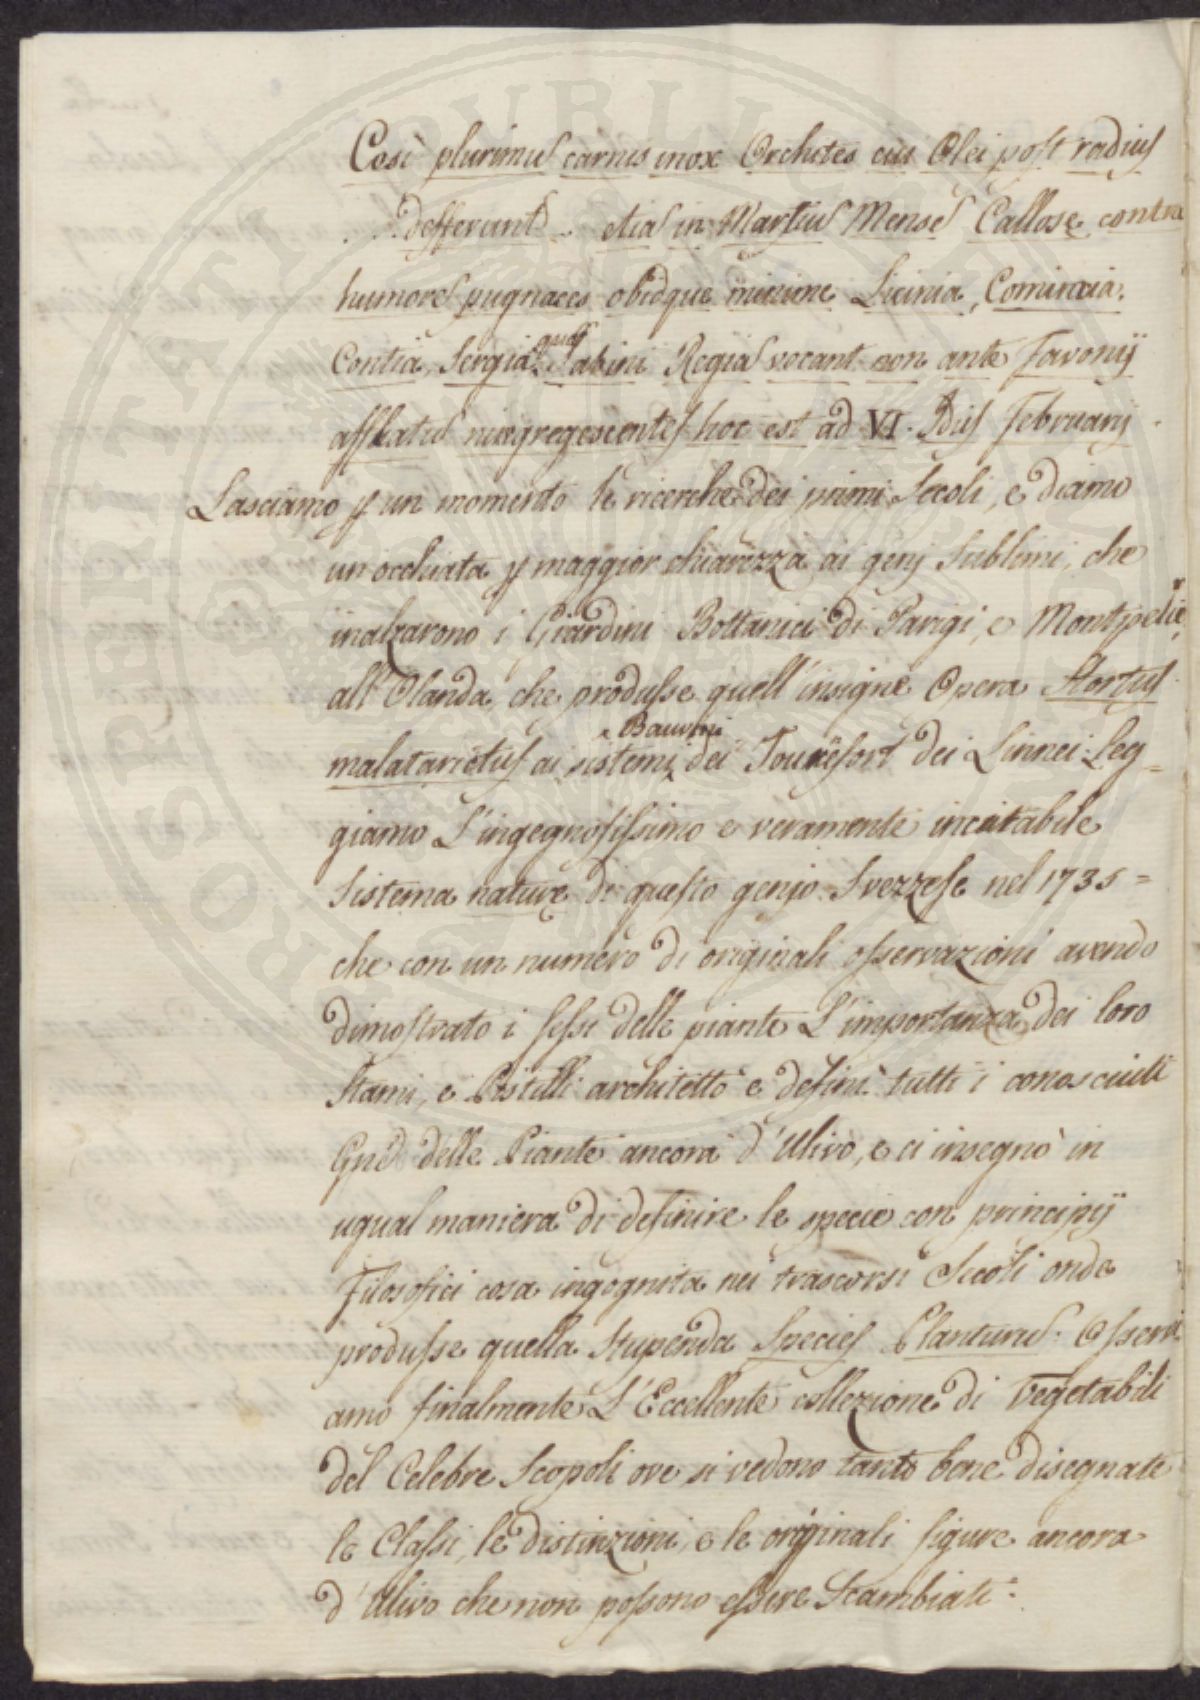 Così plurimus carnis mox Orchites cui Olei post radius
defferunt etiā in Martius Mense Callose contra
humores pugnaces obidque minime Licinia, Cominia,
Contia, Sergia quas Sabini Regias vocant non ante Favonij
afflatus nigregescentes hoc est ad VI. Idus Februarij
Lasciamo p un momento le ricerche dei primi Secoli, e diamo
un'occhiata p maggior chiarezza ai genj Sublimi, che
inalzarono i Giardini Bottanici di Parigi, e Montpelier,
all'Olanda, che produsse quell'insigne Opera Hortus
malatarictus ai sistemi Bauvini dei Tournefort dei Linnei Leg=
giamo L'ingegnosissimo e veramente imitabile
Sistema nature di questo genjo Svezzese nel 1735 =
che con un numero di originali osservazioni avendo
dimostrato i sessi delle piante L'importanza dei loro
Stami, e Pistilli architettò e definì tutti i conosciuti
Gnē delle Piante ancora d'Ulivo, e ci insegnò in
ugual maniera di definire le specie con principij
Filosofici cosa ingognita nei trascorsi Secoli onde
produsse quella Stupenda Species Plantarus: Osservi
amo finalmente L'Eccellente collezione di Vegetabili
del Celebre Scopoli ove si vedono tanto bene disegnate
le Classi, le distinzioni, e le originali figure ancora
d'Ulivo che non possono essere Scambiati:
PROSPERITATI PUBLICAE AUGENDAE